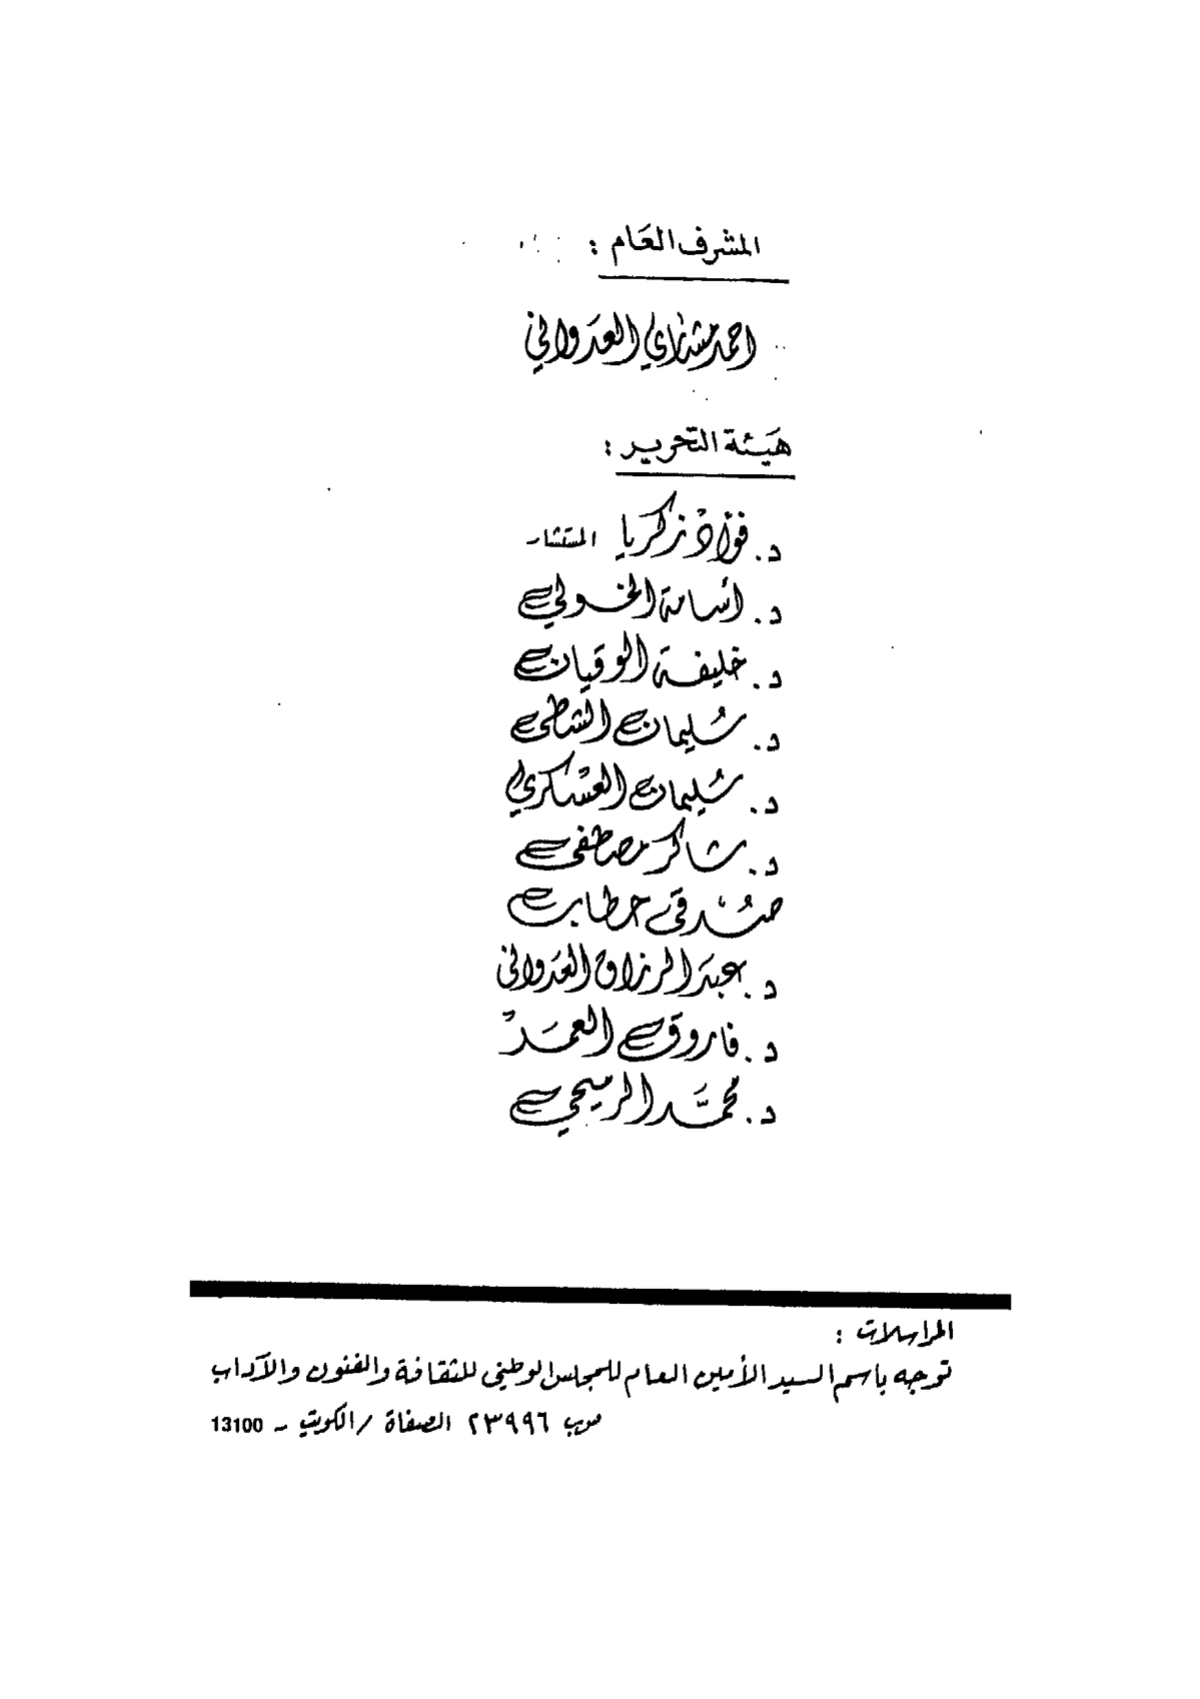 المشرف العام :
احمد مشاري العدواني
هيئة التحرير :
د. فؤاد زكريا المستشار
د. أسامة الخولي
د. خليفة الوقيان
د. سُليمان الشطي
د. سُليمان العسكري
د. شاكر مصطفى
صُدقي حطاب
د. عبد الرزاق العدواني
د. فاروق العمر
د. محمَّد الرميحي
المراسلات :
توجه باسم السيد الأمين العام للمجلس الوطني للثقافة والفنون والآداب
ص ب ٢٣٩٩٦ الصفاة / الكويت - 13100